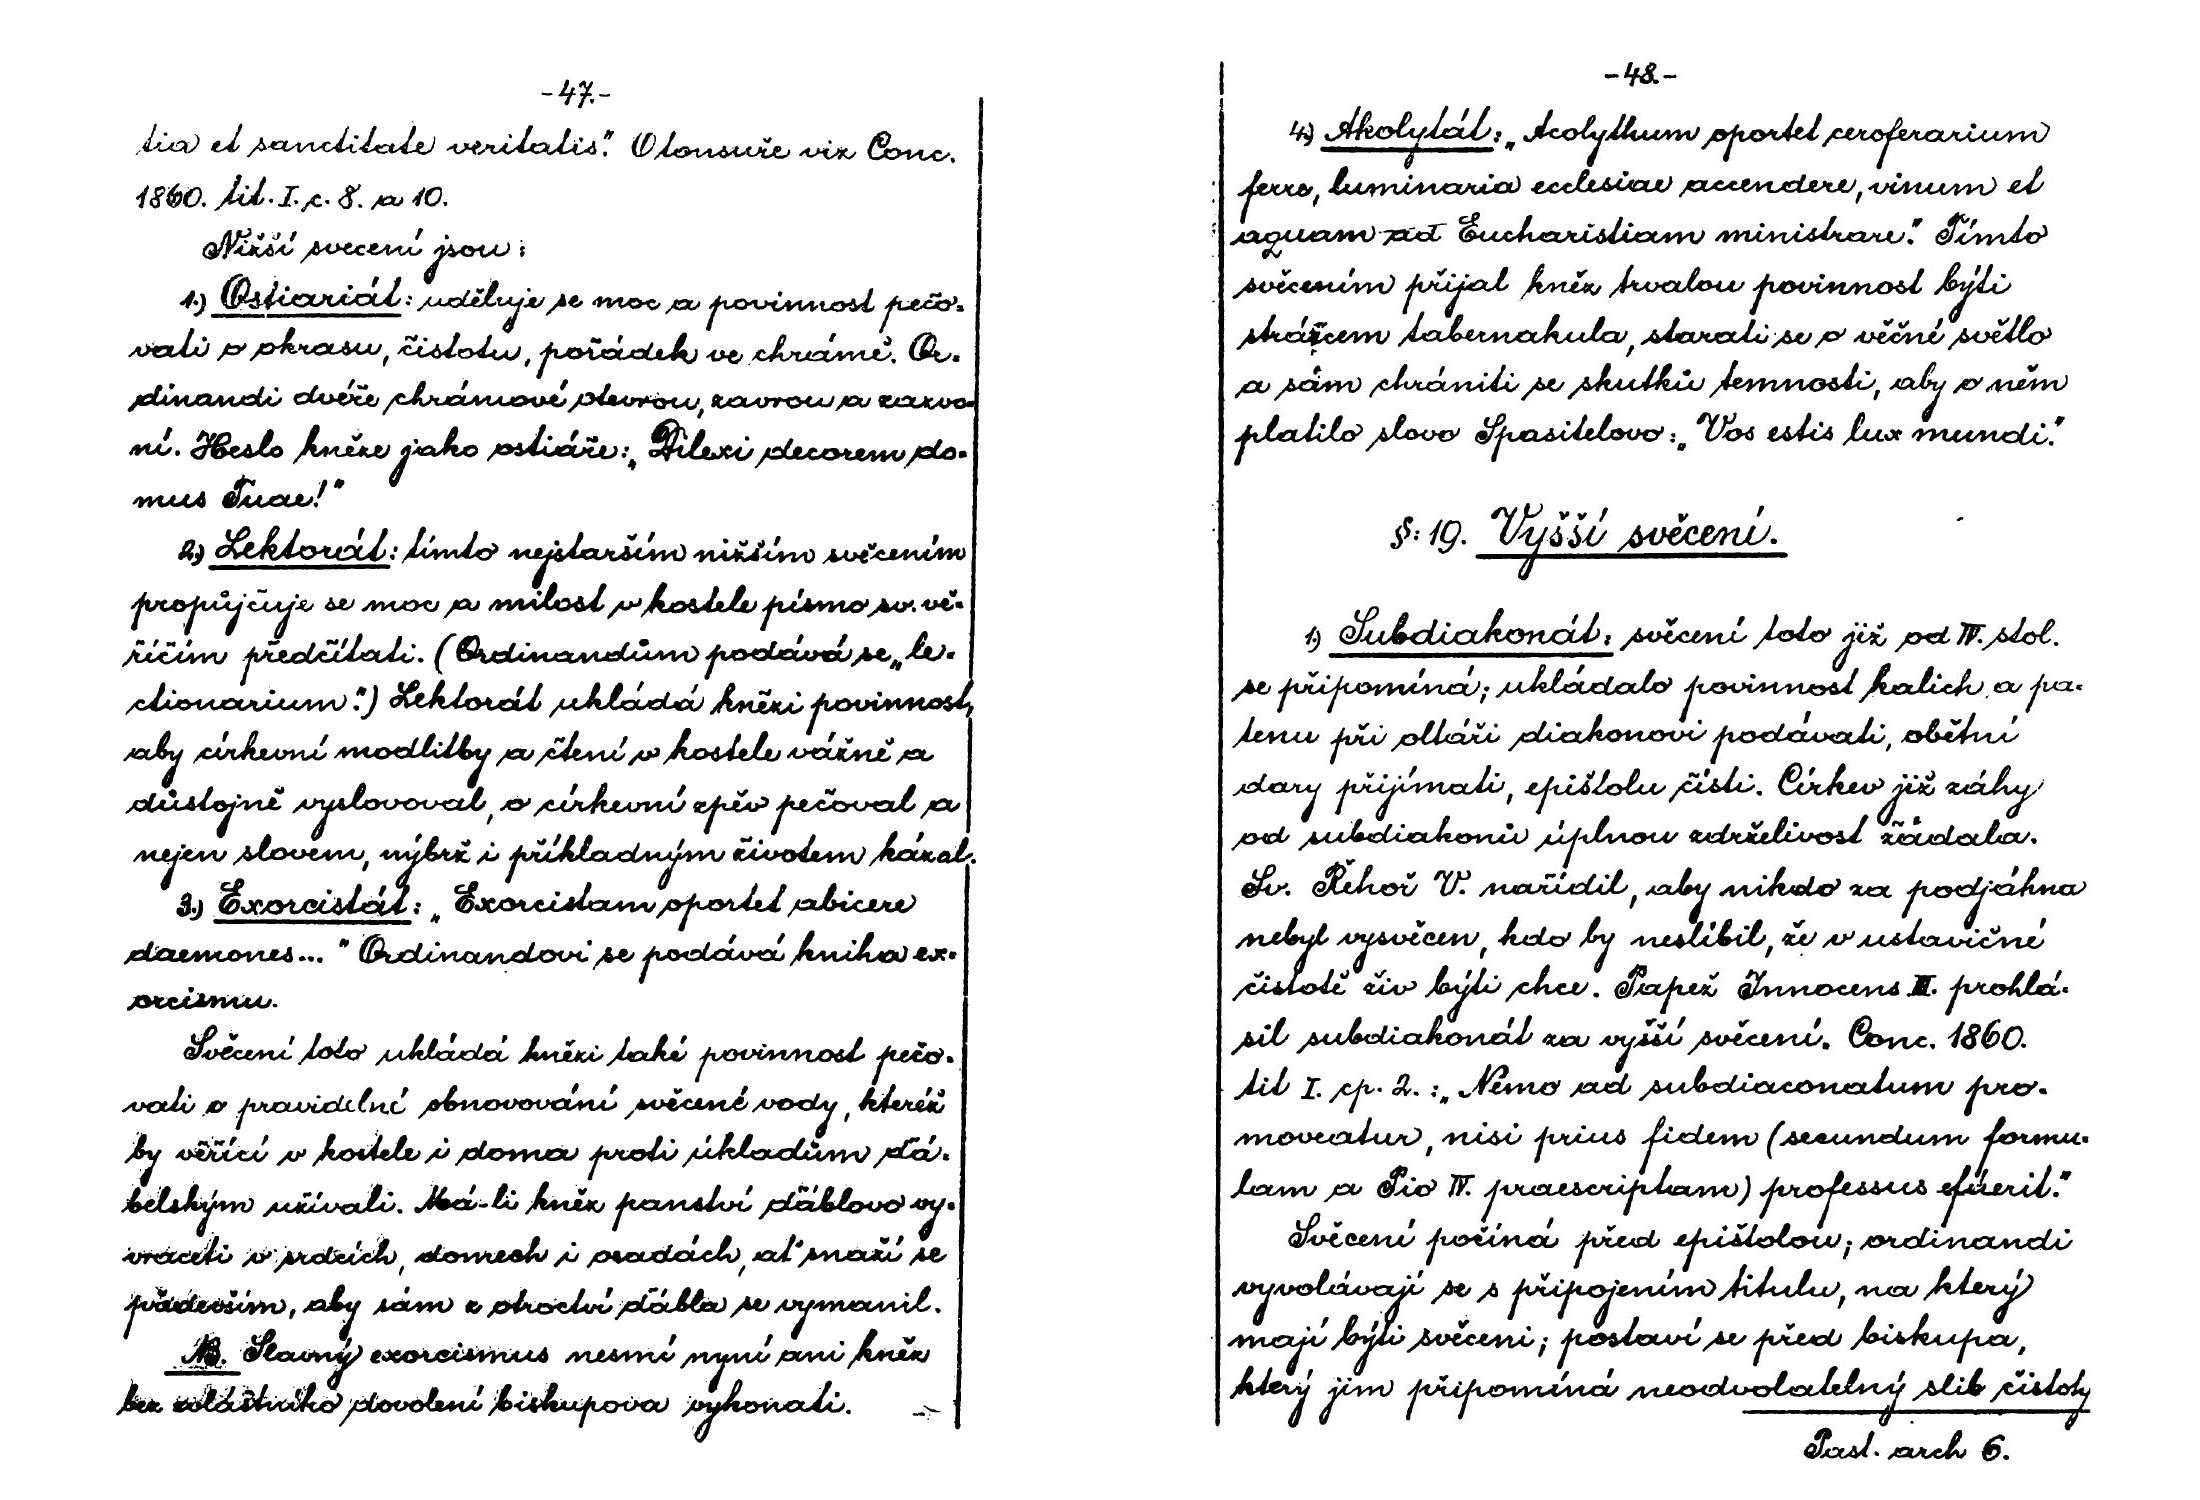 -47.-
tia et sanctitate veritatis." O tonsuře viz Conc.
1860. tit. I. c. 8. a 10.
Nižší svecení jsou:
1.) Ostiariát: uděluje se moc a povinnost pečo-
vati o okrasu, čistotu, pořádek ve chrámě. Or-
dinandi dvéře chrámové otevrou, zavrou a zazvo-
ní. Heslo kněze jako ostiáře: „Dilexi decorem do-
mus Tuae!"
2.) Lektorát: tímto nejstarším nižším svěcením
propůjčuje se moc a milost v kostele písmo sv. vě-
řícím předčítati. (Ordinandům podává se „le-
ctionarium".) Lektorát ukládá knězi povinnost,
aby církevní modlitby a čtení v kostele vážně a
důstojně vyslovoval, o církevní zpěv pečoval a
nejen slovem, nýbrž i příkladným životem kázal.
3.) Exorcistát: „Exorcistam oportet abicere
daemones..." Ordinandovi se podává kniha ex-
orcismu.
Svěcení toto ukládá knězi také povinnost pečo-
vati o pravidelné obnovování svěcené vody, kteréž
by věřící v kostele i doma proti úkladům ďá-
belským užívali. Má-li kněz panství ďáblovo vy-
vraceti v srdcích, domech i osadách, ať snaží se
především, aby sám z otroctví ďábla se vymanil.
NB. Slavný exorcismus nesmí nyní ani kněz
bez zvláštního dovolení biskupova vykonati.
-48.-
4.) Akolytát: „Acolythum oportet ceroferarium
ferre, luminaria ecclesiae accendere, vinum et
aquam ad Eucharistiam ministrare." Tímto
svěcením přijal kněz trvalou povinnost býti
strážcem tabernakula, starati se o věčné světlo
a sám chrániti se skutků temnosti, aby o něm
platilo slovo Spasitelovo: „Vos estis lux mundi."
§: 19. Vyšší svěcení.
1.) Subdiakonát: svěcení toto již od IV. stol.
se připomíná; ukládalo povinnost kalich a pa-
tenu při oltáři diakonovi podávati, obětní
dary přijímati, epištolu čísti. Církev již záhy
od subdiakonů úplnou zdrželivost žádala.
Sv. Řehoř V. nařídil, aby nikdo za podjáhna
nebyl vysvěcen, kdo by neslíbil, že v ustavičné
čistotě živ býti chce. Papež Innocens III. prohlá-
sil subdiakonát za vyšší svěcení. Conc. 1860.
tit I. cp. 2.: „Nemo ad subdiaconatum pro-
moveatur, nisi prius fidem (secundum formu-
lam a Pio IV. praescriptam) professus efúerit."
Svěcení počíná před epištolou; ordinandi
vyvolávají se s připojením titulu, na který
mají býti svěceni; postaví se před biskupa,
který jim připomíná neodvolatelný slib čistoty
Past. arch 6.